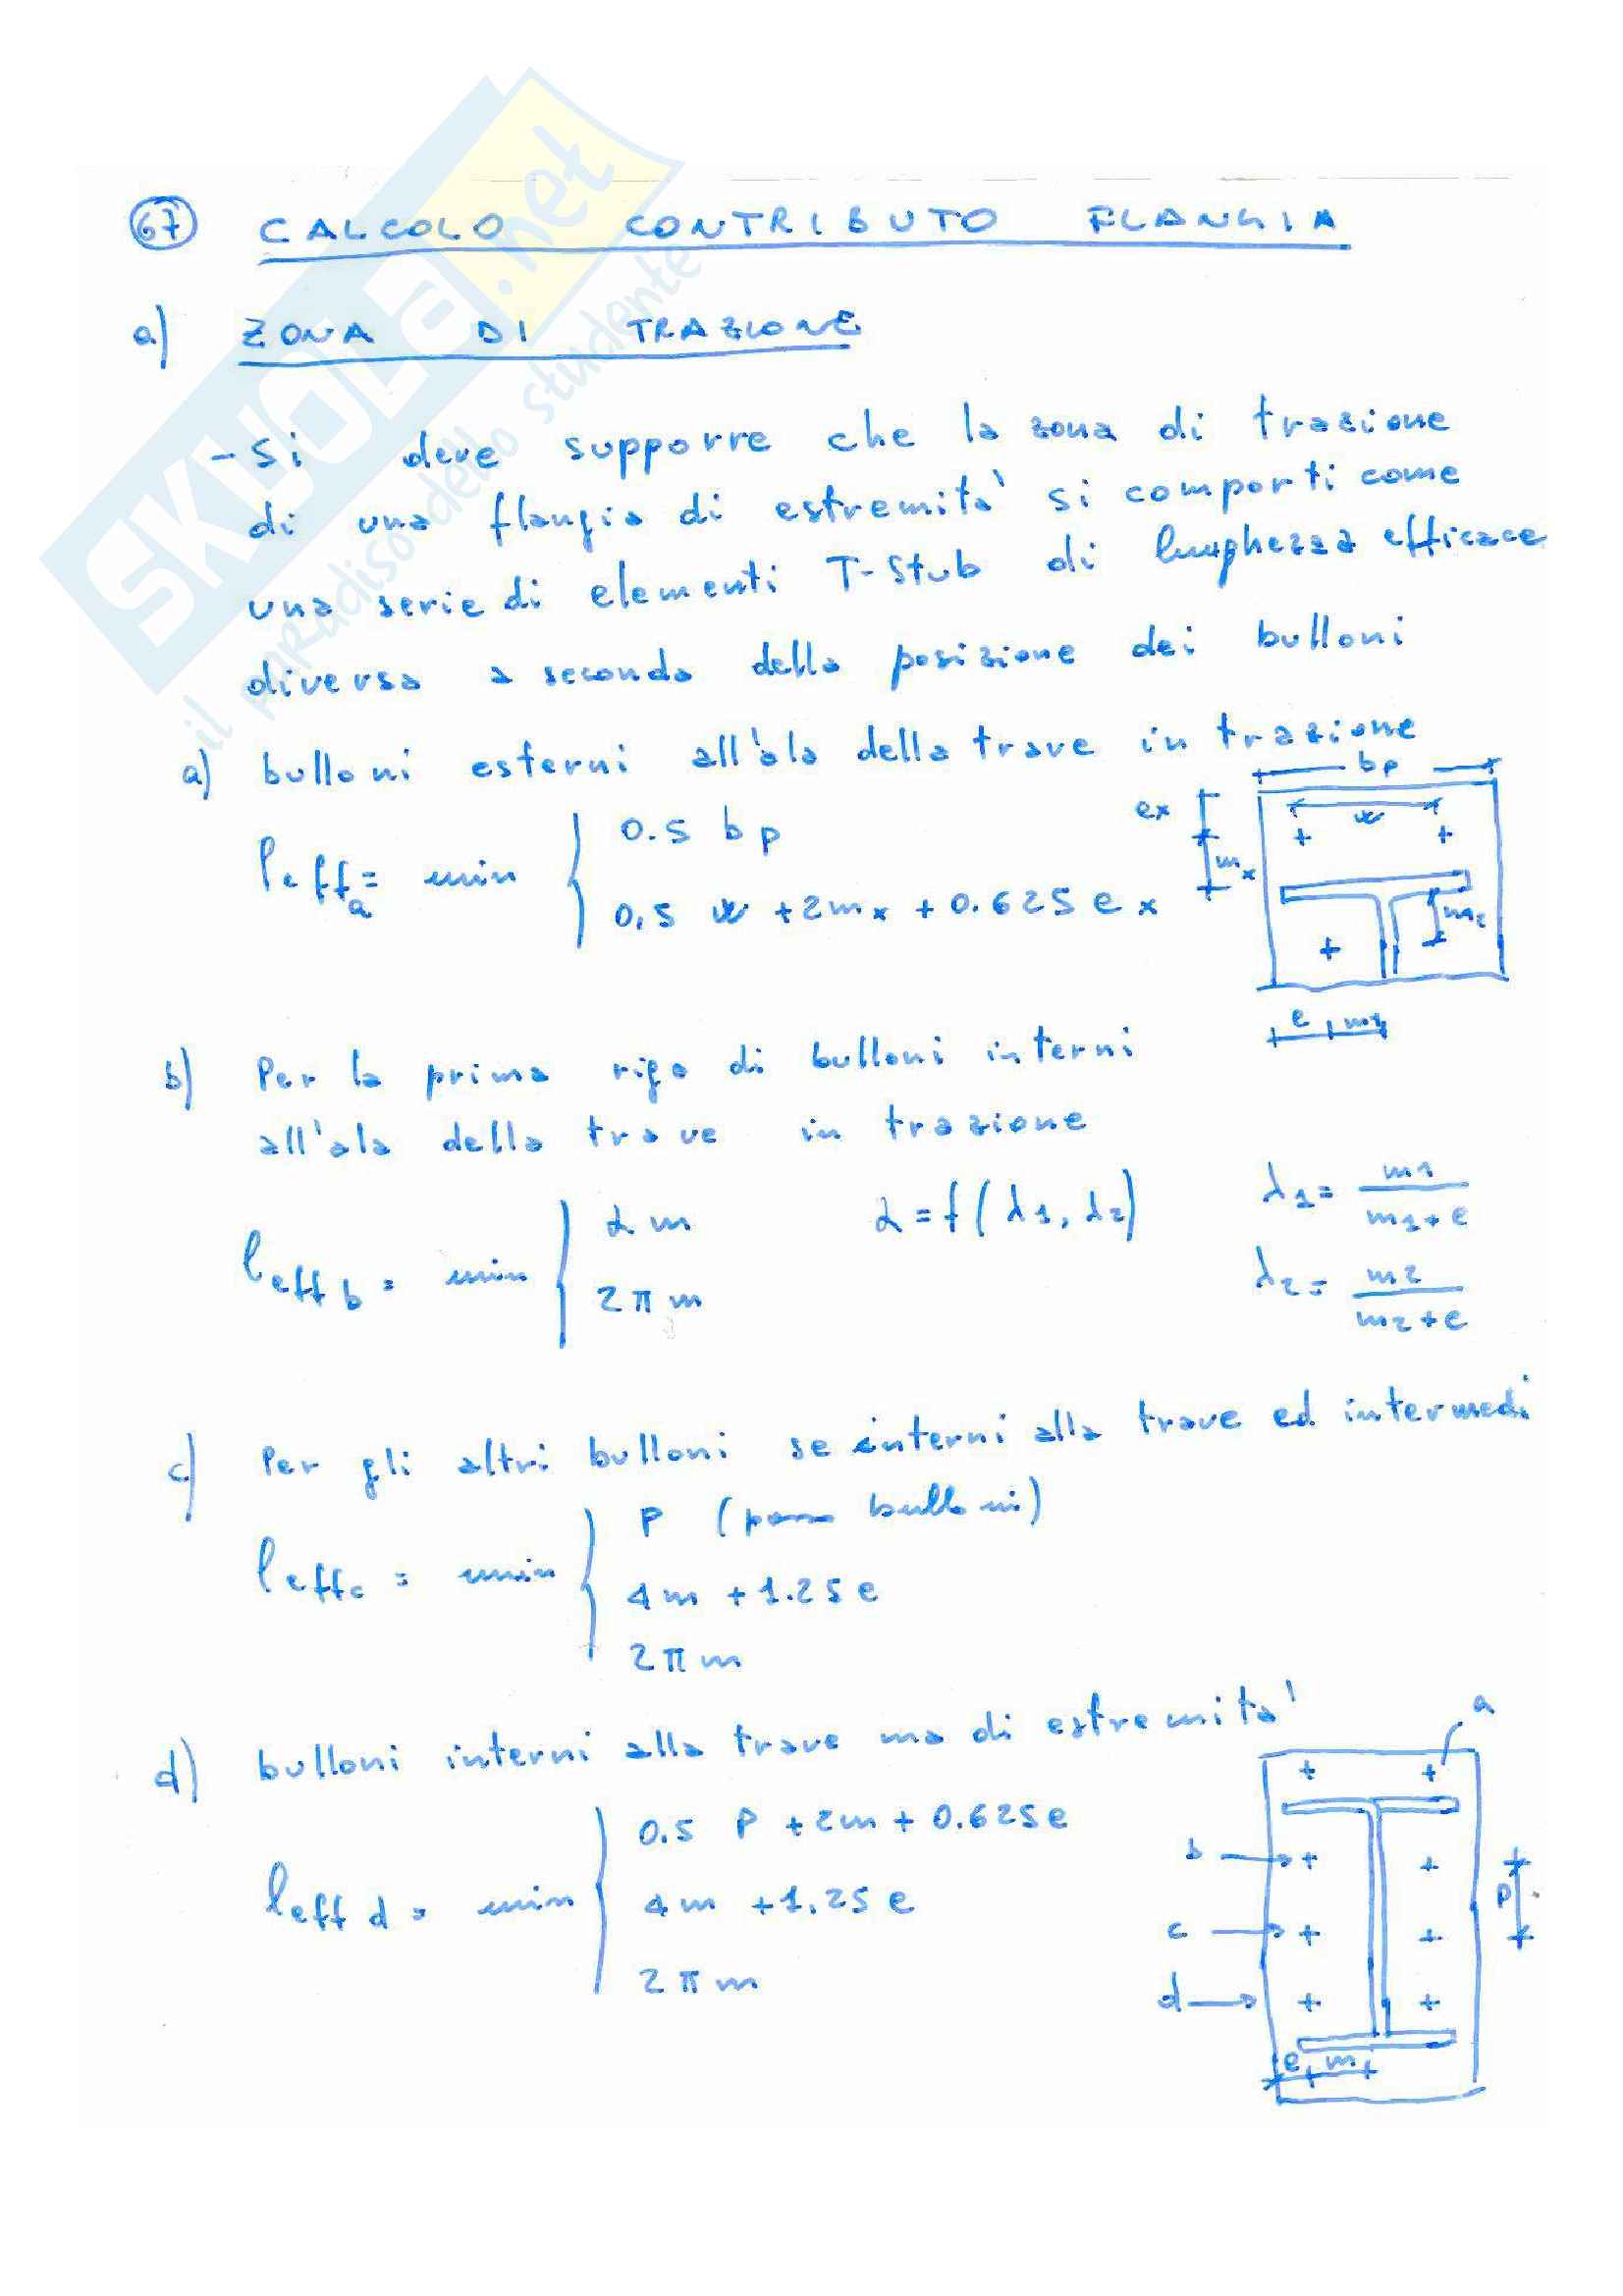 67 CALCOLO CONTRIBUTO FLANGIA
a) ZONA DI TRAZIONE
- Si deve supporre che la zona di trazione
di una flangia di estremità si comporti come
una serie di elementi T-Stub di lunghezza efficace
diversa a seconda della posizione dei bulloni
a) bulloni esterni all'ala della trave in trazione
leff a = min { 0.5 bp
0.5 w + 2mx + 0.625 ex
bp
ex
w
mx
m2
e m1
b) Per la prima riga di bulloni interni
all'ala della trave in trazione
leff b = min { α m
2π m
α = f(λ1, λ2)
λ1 = m1 / m1+e
λ2 = m2 / m2+e
c) Per gli altri bulloni se interni alla trave ed intermedi
leff c = min { P (passo bulloni)
4m + 1.25 e
2π m
d) bulloni interni alla trave ma di estremità
leff d = min { 0.5 P + 2m + 0.625e
4m + 1.25 e
2π m
a
b
c
d
P
e m
SKUOLA.net
il paradiso dello studente